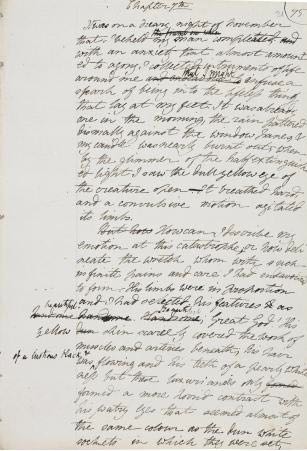 Chapter 7th
75
It was on a dreary night of November
that I beheld my man completed, and
with an anxiety that almost amount
ed to agony, I collected instruments of life
around me that I might infuse a
spark of being into the lifeless thing
that lay at my feet. It was already
one in the morning, the rain pattered
dismally against the window panes, &
my candle was nearly burnt out, when
by the glimmer of the half extinguish
ed light I saw the dull yellow eye of
the creature open — It breathed hard,
and a convulsive motion agitated
its limbs.
But how How can I describe my
emotion at this catastrophe; or how deli
neate the wretch whom with such
infinite pains and care I had endeavoured
to form. His limbs were in proportion
and I had selected his features as
beautiful
handsome. Beautiful; Great God! His
yellow skin scarcely covered the work of
muscles and arteries beneath; his hair
of a lustrous black, &
was flowing and his teeth of a pearly white
ness but these luxuriances only
formed a more horrid contrast with
his watry eyes that seemed almost of
the same colour as the dun white
sockets in which they were set,